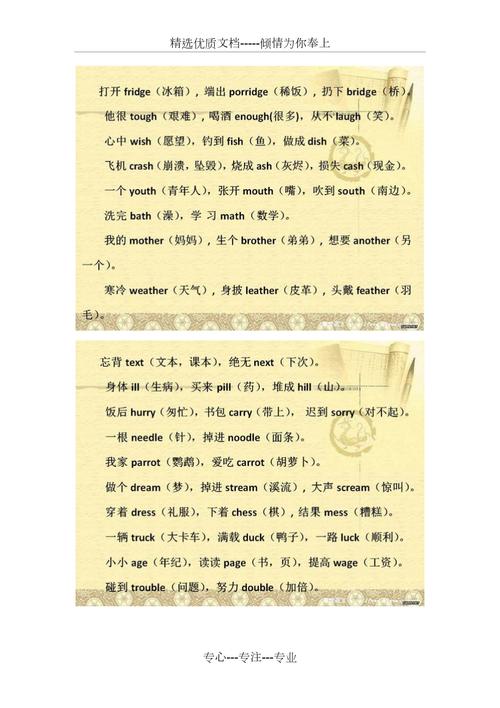 精选优质文档-----倾情为你奉上
打开 fridge（冰箱）, 端出 porridge（稀饭）, 扔下 bridge（桥）。
他很 tough（艰难）, 喝酒 enough(很多)，从不 laugh（笑）。
心中 wish（愿望），钓到 fish（鱼），做成 dish（菜）。
飞机 crash（崩溃，坠毁），烧成 ash（灰烬），损失 cash（现金）。
一个 youth（青年人），张开 mouth（嘴），吹到 south（南边）。
洗完 bath（澡），学 习 math（数学）。
我的 mother（妈妈）, 生个 brother（弟弟）, 想要 another（另
一个）。
寒冷 weather（天气）, 身披 leather（皮革）, 头戴 feather（羽
毛）。
忘背 text（文本，课本），绝无 next（下次）。
身体 ill（生病），买来 pill（药），堆成 hill（山）。
饭后 hurry（匆忙），书包 carry（带上）， 迟到 sorry（对不起）。
一根 needle（针），掉进 noodle（面条）。
我家 parrot（鹦鹉），爱吃 carrot（胡萝卜）。
做个 dream（梦），掉进 stream（溪流）, 大声 scream（惊叫）。
穿着 dress（礼服），下着 chess（棋）, 结果 mess（糟糕）。
一辆 truck（大卡车），满载 duck（鸭子），一路 luck（顺利）。
小小 age（年纪），读读 page（书，页），提高 wage（工资）。
碰到 trouble（问题），努力 double（加倍）。
专心---专注---专业